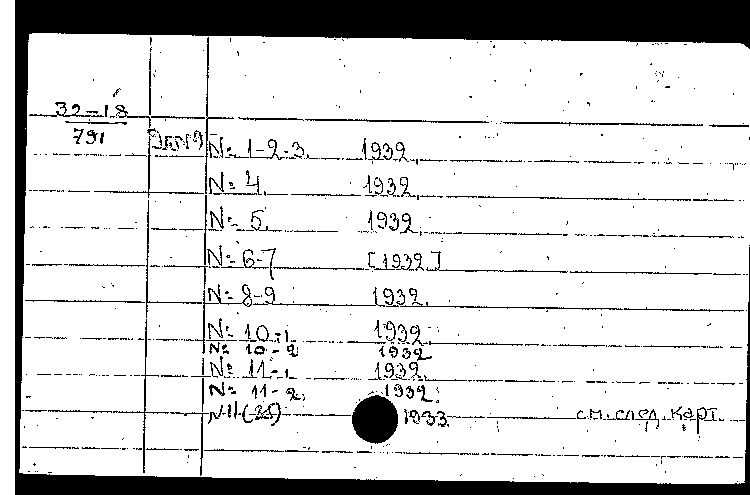 32-18
791
N: 1-2-3. 1932.
N: 4. 1932.
N: 5. 1932.
N: 6-7 [1932]
N: 8-9 1932.
N: 10-1 1932.
N: 10-2 1932
N: 11-1 1932.
N: 11-2. 1932.
N 11 (35) 1933 см. след. карт.